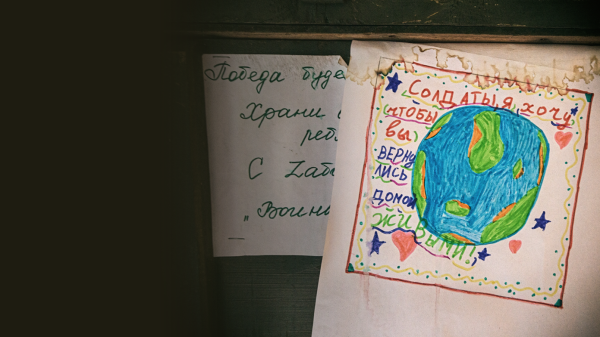 Победа буде
Храни
С Zап
„Воины
СОЛДАТЫ Я ХОЧУ
ЧТОБЫ
ВЫ
ВЕРНУ
ЛИСЬ
ДОМОЙ
ЖИВЫМИ!